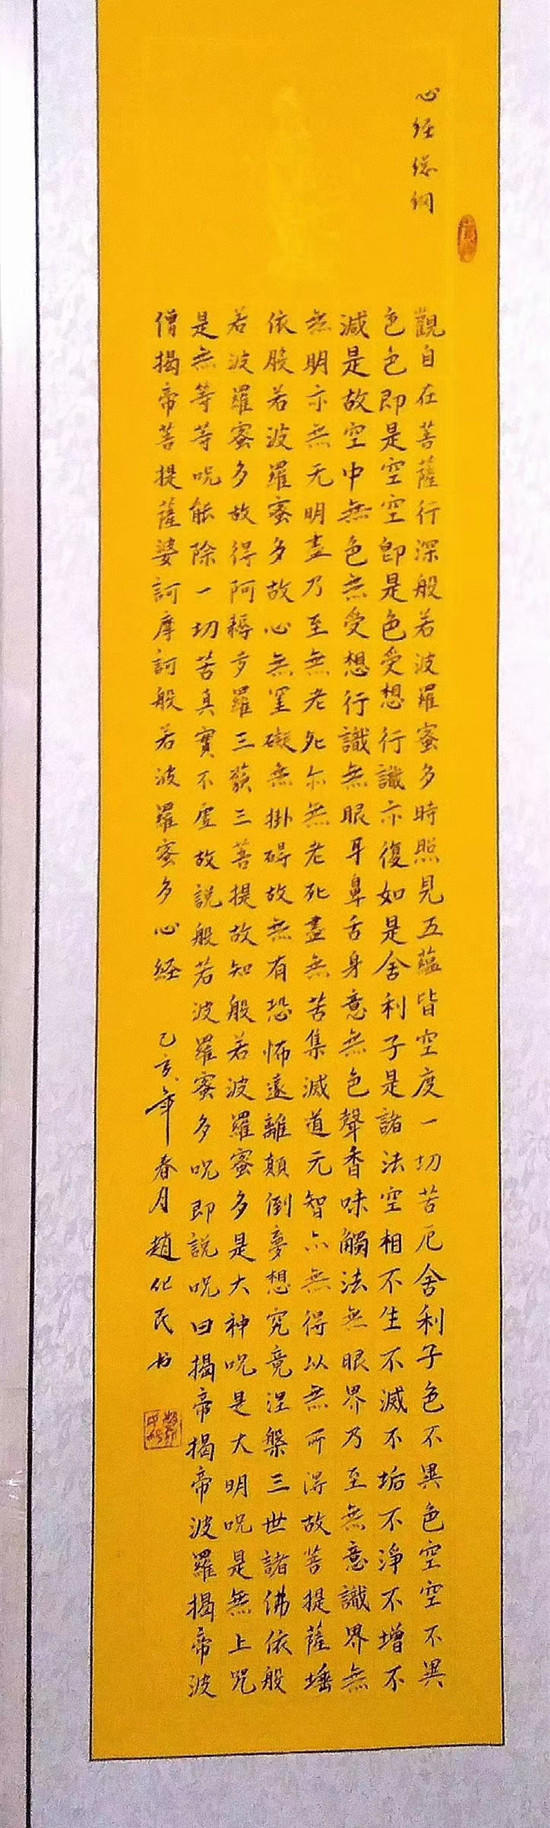 心経総纲
觀自在菩薩行深般若波羅蜜多時照見五蘊皆空度一切苦厄舍利子色不異色空空不異
色色即是空空即是色受想行識亦復如是舍利子是諸法空相不生不滅不垢不淨不增不
減是故空中無色無受想行識無眼耳鼻舌身意無色聲香味觸法無眼界乃至無意識界無
無明亦無无明盡乃至無老死亦無老死盡無苦集滅道元智亦無得以無所得故菩提薩埵
依般若波羅蜜多故心無罣礙無掛碍故無有恐怖遠離顛倒夢想究竟涅槃三世諸佛依般
若波羅蜜多故得阿耨多羅三藐三菩提故知般若波羅蜜多是大神咒是大明咒是無上咒
是無等等咒能除一切苦真實不虛故説般若波羅蜜多咒即説咒曰揭帝揭帝波羅揭帝波
僧揭帝菩提薩婆訶摩訶般若波羅蜜多心經 乙亥年春月趙化民书